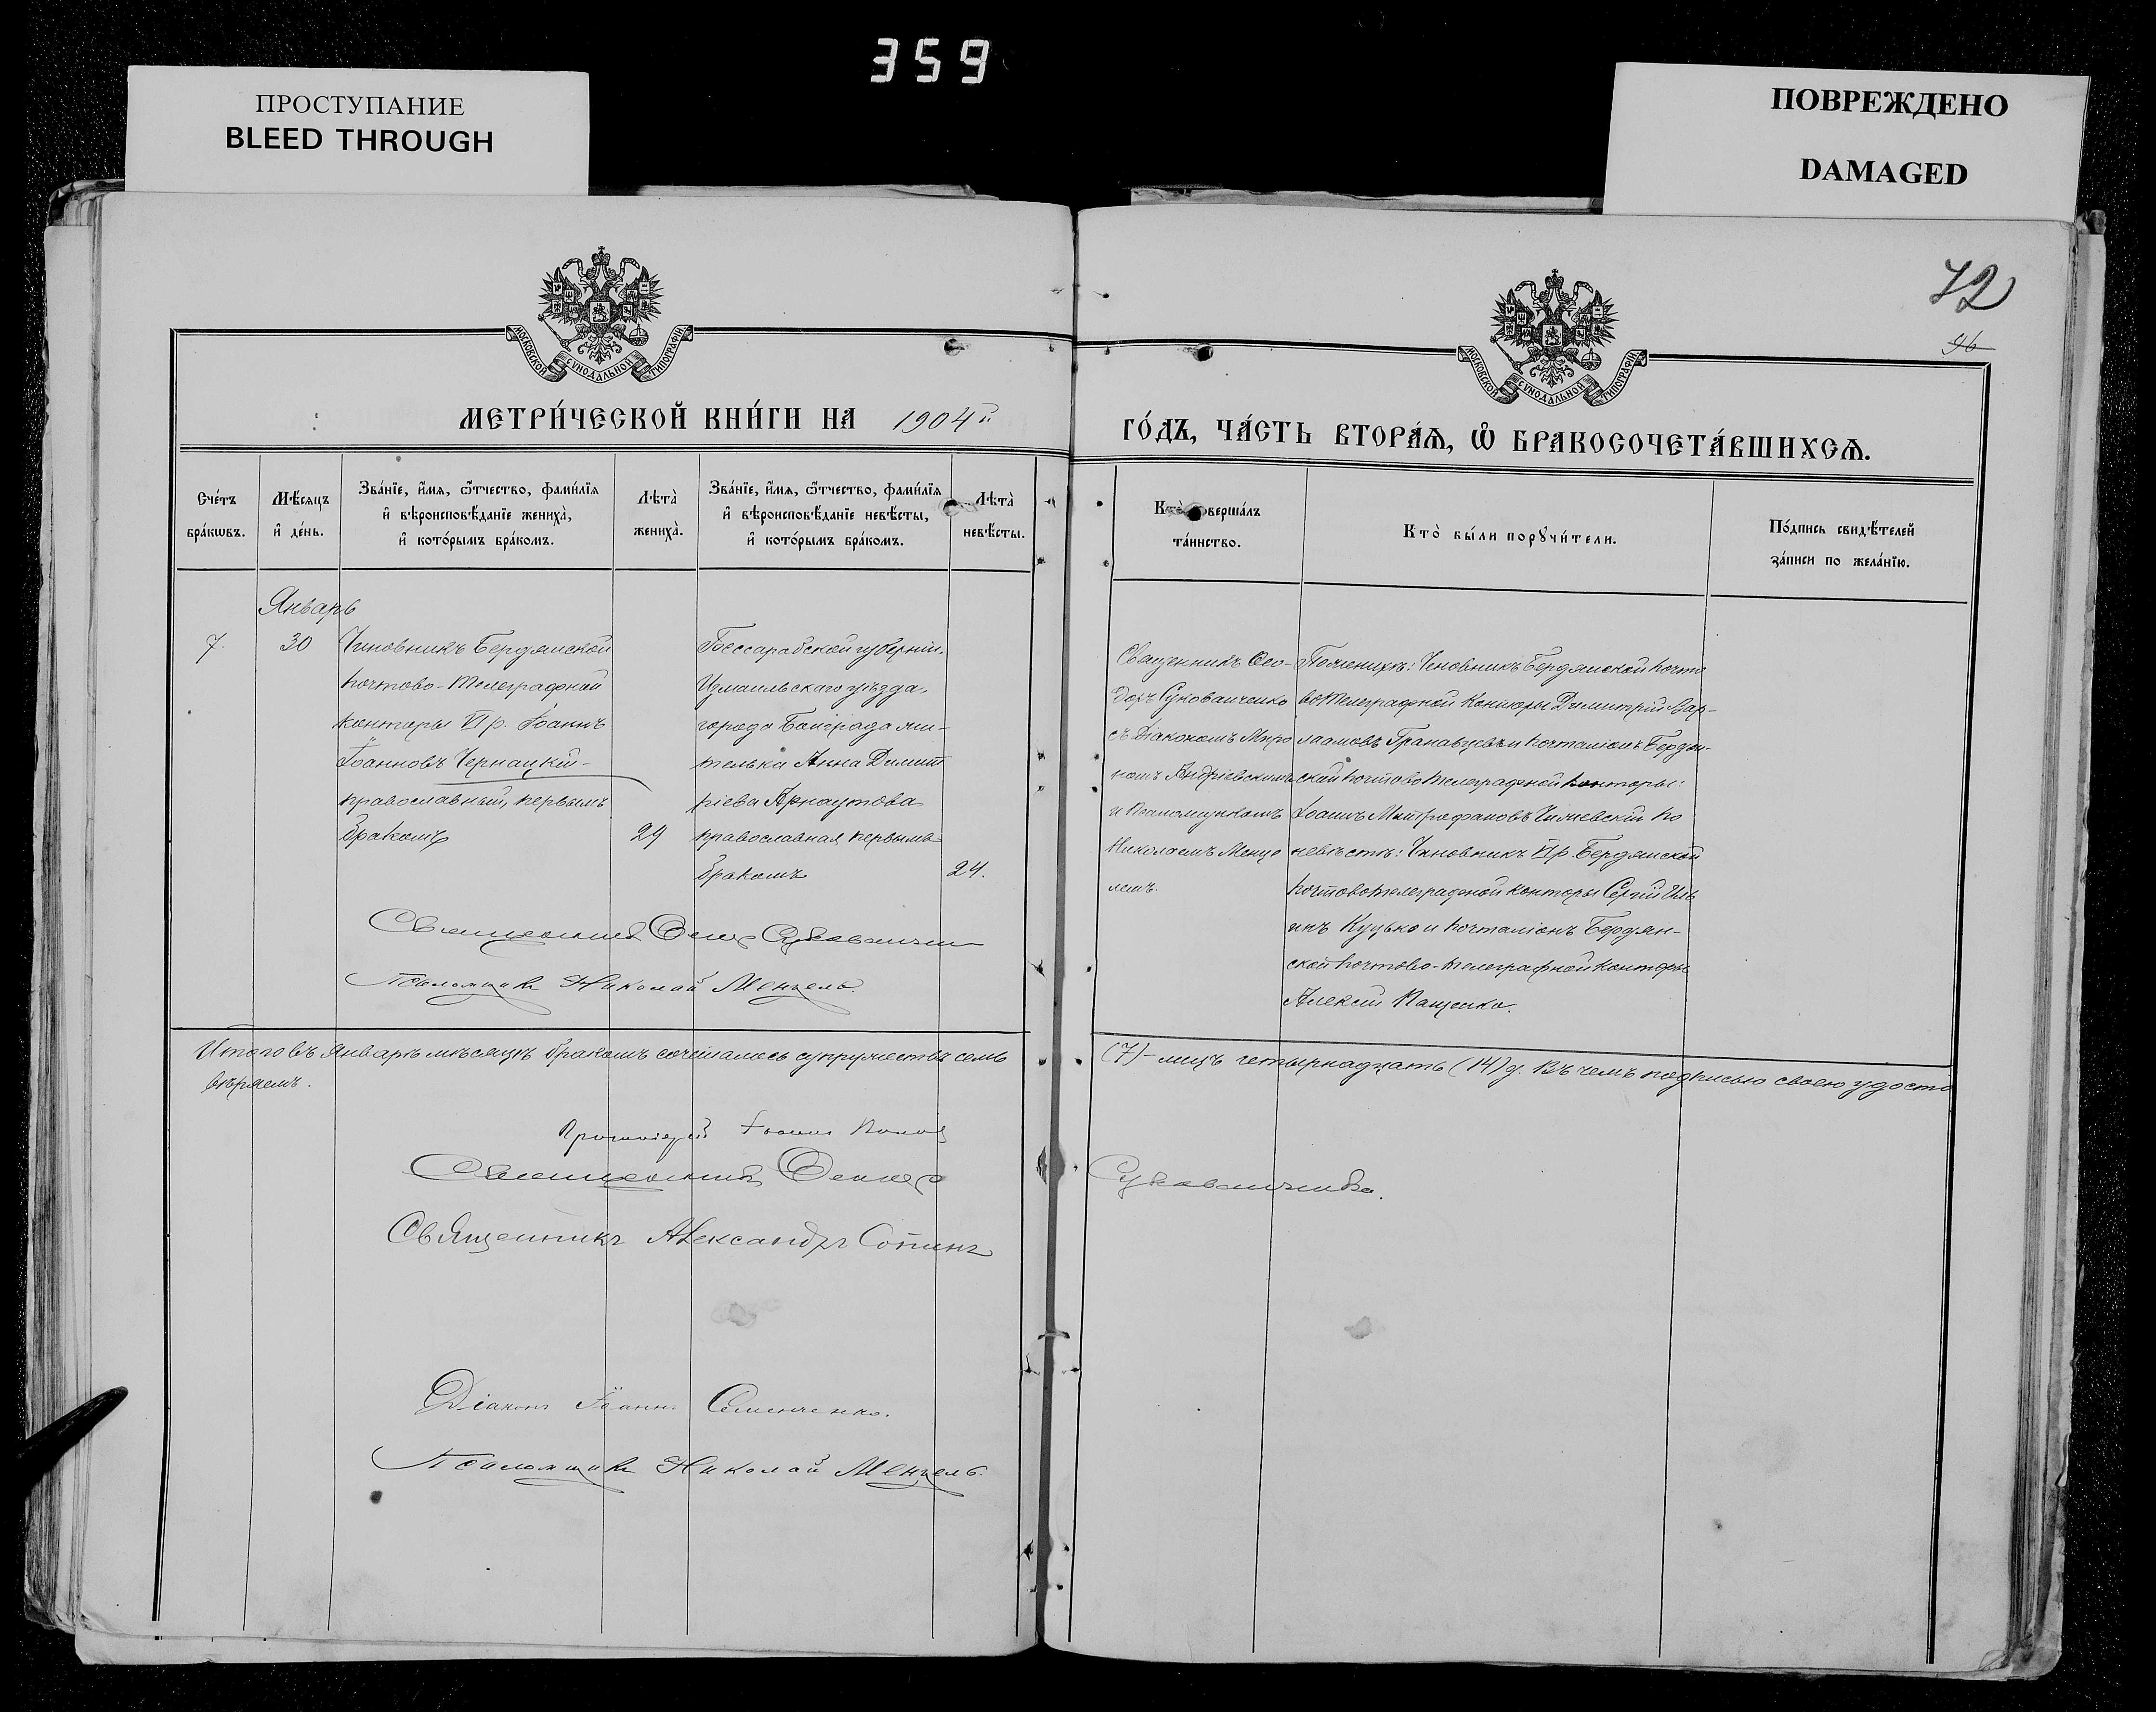 359
ПРОСТУПАНИЕ
BLEED THROUGH
ПОВРЕЖДЕНО
DAMAGED
72
96
МОСКОВСКОЙ СѴНОДАЛЬНОЙ ТИПОГРАФІИ
МОСКОВСКОЙ СѴНОДАЛЬНОЙ ТИПОГРАФІИ
МЕТРИ́ЧЕСКОЙ КНИ́ГИ НА 1904й
ГО́ДЪ, ЧА́СТЬ ВТОРА́Ѧ, Ѡ҆ БРАКОСОЧЕТА́ВШИХСѦ.
Сче́тъ бра́кѡвъ.
Мѣ́сѧцъ и҆ де́нь.
Зва́нїе, и҆́мѧ, ѻ҆́тчество, фами́лїѧ и҆ вѣроисповѣ́данїе жениха̀, и҆ кото́рымъ бра́комъ.
Лѣта̀ жениха̀.
Зва́нїе, и҆́мѧ, ѻ҆́тчество, фами́лїѧ и҆ вѣроисповѣ́данїе невѣ́сты, и҆ кото́рымъ бра́комъ.
Лѣта̀ невѣ́сты.
Кто̀ соверша́лъ та́инство.
Кто̀ бы́ли порꙋчи́тели.
По́дпись свидѣ́телей за́писи по жела́нїю.
Январь
7.
30
Чиновникъ Бердянской
почтово-телеграфной
конторы VI р. Іоаннъ
Іоанновъ Чернацкій-
православный, первымъ
бракомъ
29
Бессарабской губерніи.
Измаильскаго уѣзда,
города Болграда жи-
телька Анна Димит
ріева Арнаутова
православная, первымъ
бракомъ
24.
Священникъ Ѳео-
доръ Суковаиченко
съ Діакономъ Миро
номъ Андріевскимъ
и Псаломщикомъ
Николаемъ Менце
лемъ.
По женихѣ: Чиновникъ Бердянской почто
во телеграфной конторы Димитрій Вар-
лаамовъ и почталіонъ Бердян-
ской почтово телеграфной конторы:
Іоаннъ Митрофановъ по
невѣстѣ: Чиновникъ VI р. Бердянской
почтово телеграфной конторы Сергій Иль
инъ Куцько и почталіонъ Бердян-
ской почтово-телеграфной конторы
Алексій Пащенко.
Священникъ
Псаломщикъ Николай Менцель.
Итого въ Январѣ мѣсяцѣ бракомъ сочеталось супружествъ семь
(7)-лицъ четырнадцать (14) д. Въ чемъ подписью своею удосто
вѣряемъ.
Протоіерей Іоаннъ Поповъ
Священникъ Ѳеодоръ
Суковаиченко.
Священникъ Александръ Сотинъ
Діаконъ Іоаннъ Семенченко.
Псаломщикъ Николай Менцель.